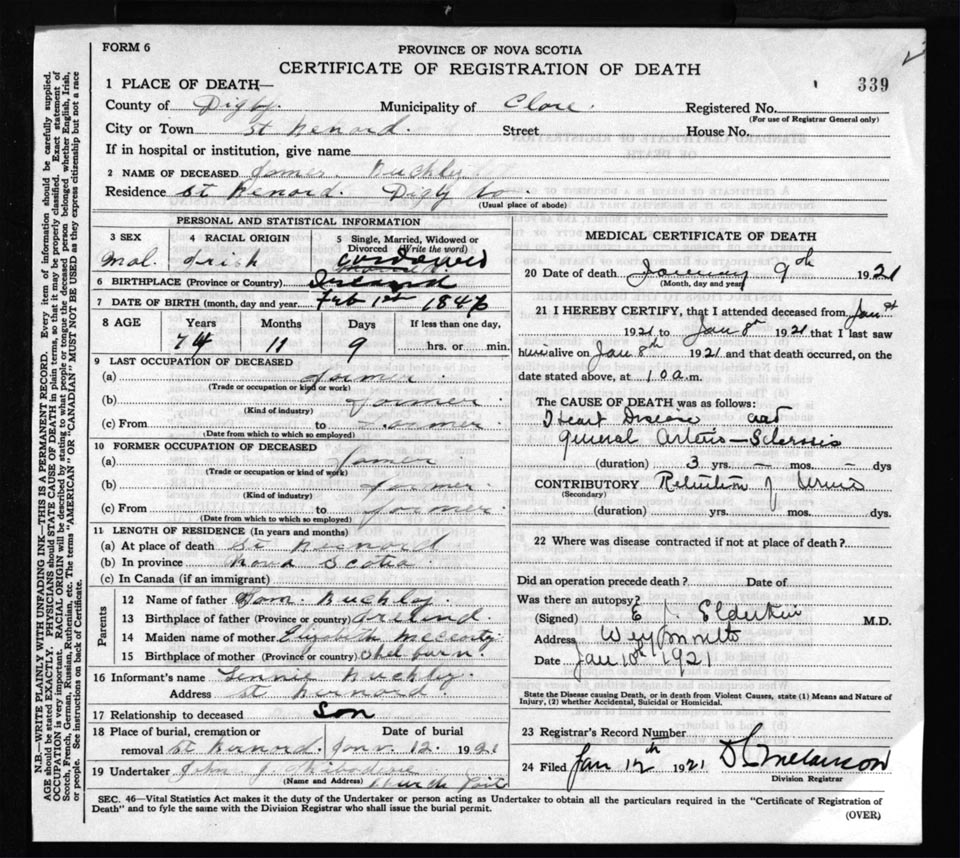 FORM 6
PROVINCE OF NOVA SCOTIA
CERTIFICATE OF REGISTRATION OF DEATH
339
1 PLACE OF DEATH—
County of Digby. Municipality of Clare. Registered No.
(For use of Registrar General only)
City or Town St Street House No.
If in hospital or institution, give name
2 NAME OF DECEASED James
Residence St Digby Co
(Usual place of abode)
PERSONAL AND STATISTICAL INFORMATION
3 SEX
Mal.
4 RACIAL ORIGIN
Irish
5 Single, Married, Widowed or Divorced (Write the word)
Widowed
6 BIRTHPLACE (Province or Country) Ireland
7 DATE OF BIRTH (month, day and year) Feb 1st 1846
8 AGE Years Months Days If less than one day,
74 11 9 hrs. or min.
9 LAST OCCUPATION OF DECEASED
(a) farmer
(Trade or occupation or kind or work)
(b) farmer
(Kind of industry)
(c) From to farmer
(Date from which to which so employed)
10 FORMER OCCUPATION OF DECEASED
(a) farmer
(Trade or occupation or kind of work)
(b) farmer
(Kind of industry)
(c) From to farmer
(Date from which to which so employed)
11 LENGTH OF RESIDENCE (In years and months)
(a) At place of death St
(b) In province Nova Scotia
(c) In Canada (if an immigrant)
Parents
12 Name of father
13 Birthplace of father (Province or country) Ireland
14 Maiden name of mother Elizabeth
15 Birthplace of mother (Province or country)
16 Informant's name
Address St
17 Relationship to deceased Son
18 Place of burial, cremation or Date of burial
removal St Janr. 12. 1921
19 Undertaker John J
(Name and Address)
MEDICAL CERTIFICATE OF DEATH
20 Date of death January 9th 1921
(Month, day and year)
21 I HEREBY CERTIFY, that I attended deceased from Jan
1921 to Jan 8th 1921 that I last saw
him alive on Jan 8th 1921 and that death occurred, on the
date stated above, at 10 a.m.
The CAUSE OF DEATH was as follows:
Heart Disease and
general Arterio-Sclerosis
(duration) 3 yrs. – mos. – dys
CONTRIBUTORY Retention of Urine
(Secondary)
(duration) yrs. mos. dys.
22 Where was disease contracted if not at place of death?
Did an operation precede death? Date of
Was there an autopsy?
(Signed) E Elderkin M.D.
Address Weymouth
Date Jan 10th 1921
State the Disease causing Death, or in death from Violent Causes, state (1) Means and Nature of
Injury, (2) whether Accidental, Suicidal or Homicidal.
23 Registrar's Record Number
24 Filed Jan 12th 1921 Melanson
Division Registrar
SEC. 46—Vital Statistics Act makes it the duty of the Undertaker or person acting as Undertaker to obtain all the particulars required in the "Certificate of Registration of
Death" and to fyle the same with the Division Registrar who shall issue the burial permit.
(OVER)
N.B.—WRITE PLAINLY WITH UNFADING INK—THIS IS A PERMANENT RECORD. Every item of information should be carefully supplied.
AGE should be stated EXACTLY. PHYSICIANS should STATE CAUSE OF DEATH in plain terms, so that it may be properly classified. Exact statement of
OCCUPATION is very important. RACIAL ORIGIN will be described by stating to what people or tongue the deceased person belonged whether English, Irish,
Scotch, French, German, Russian, Ruthenian, etc. The terms "AMERICAN" OR "CANADIAN" MUST NOT BE USED as they express citizenship but not a race
or people. See instructions on back of Certificate.